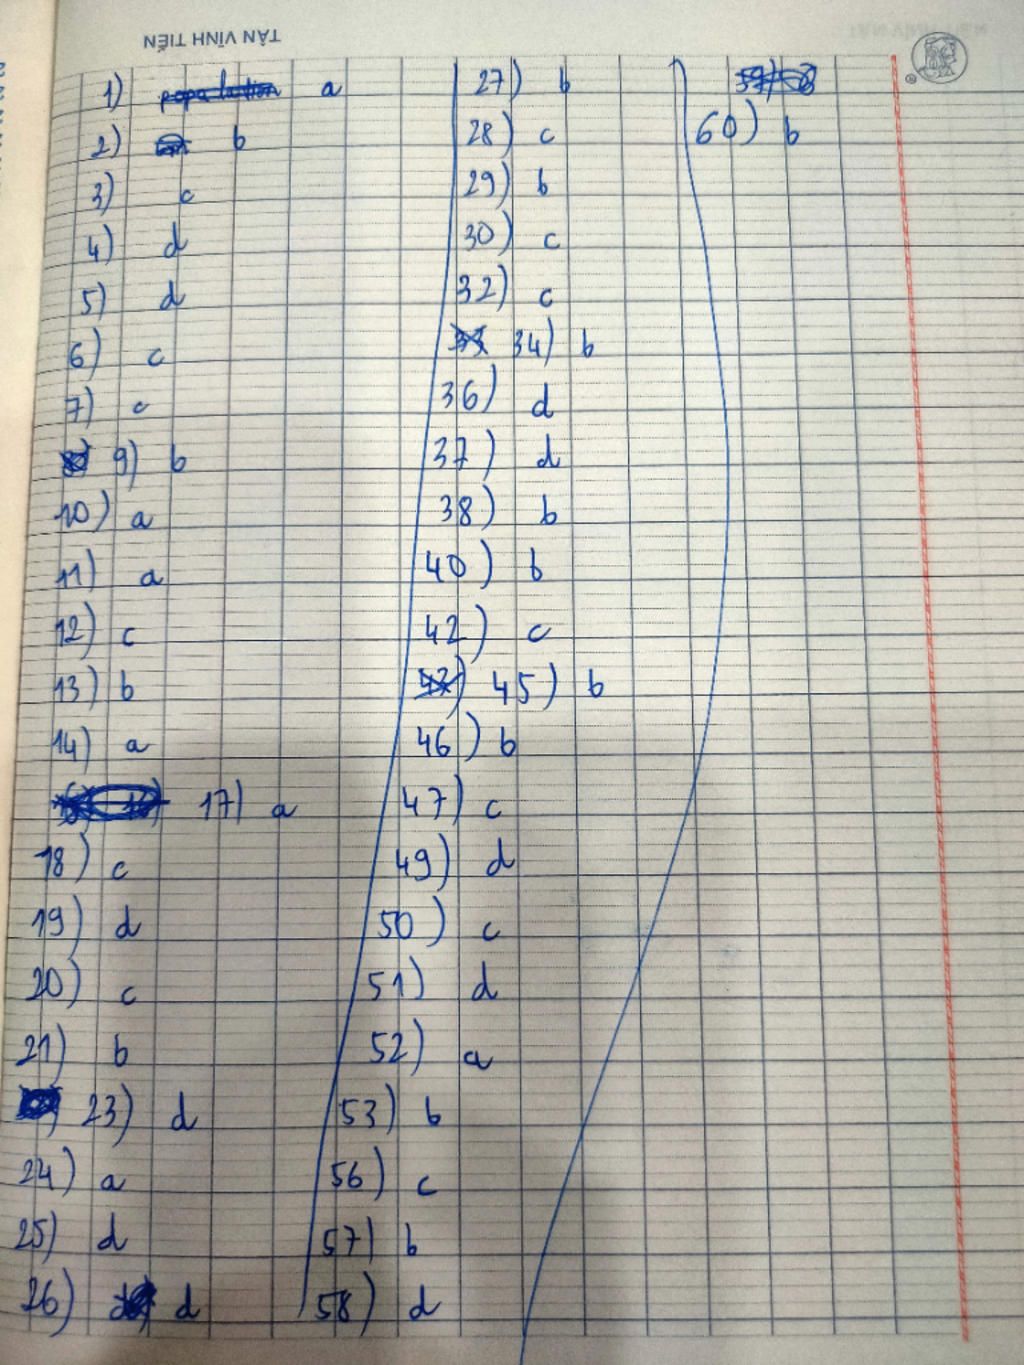 TÂN VĨNH TIẾN
1) a
2) b
3) c
4) d
5) d
6) c
7) c
9) b
10) a
11) a
12) c
13) b
14) a
17) a
18) c
19) d
20) c
21) b
23) d
24) a
25) d
26) d
27) b
28) c
29) b
30) c
32) c
34) b
36) d
37) d
38) b
40) b
42) c
45) b
46) b
47) c
49) d
50) c
51) d
52) a
53) b
56) c
57) b
58) d
60) b